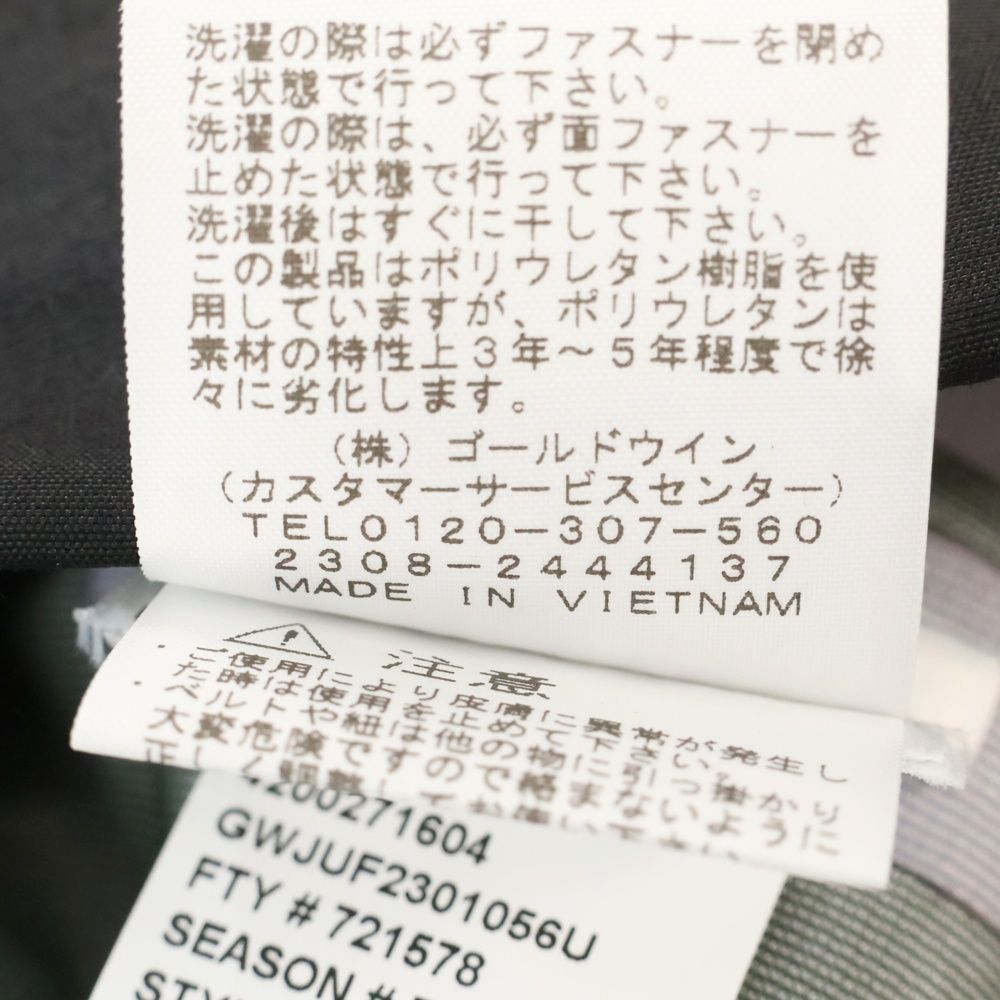 洗濯の際は必ずファスナーを閉め
た状態で行って下さい。
洗濯の際は、必ず面ファスナーを
止めた状態で行って下さい。
洗濯後はすぐに干して下さい。
この製品はポリウレタン樹脂を使
用していますが、ポリウレタンは
素材の特性上3年～5年程度で徐
々に劣化します。
(株)ゴールドウイン
(カスタマーサービスセンター)
TEL0120-307-560
2308-2444137
MADE IN VIETNAM
注意
・ご使用により皮膚に異常が発生し
た時は使用を止めて下さい。
・ベルトや紐は他の物に引っ掛かり
大変危険ですので絡まないように
正しく調整してお使い下さい
4200271604
GWJUF2301056U
FTY # 721578
SEASON #